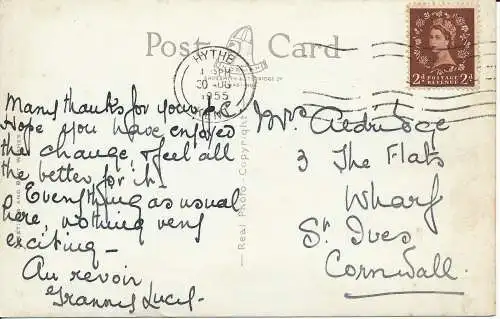 Post Card
HYTHE
30
1955
KENT
2D POSTAGE REVENUE 2D
Real Photo - Copyright
Many thanks for your p.c.
Hope you have enjoyed
the change, & feel all
the better for it -
Everything as usual
here, nothing very
exciting -
Au revoir
Mrs Aldridge
3 The Flats
Wharf
St. Ives
Cornwall.